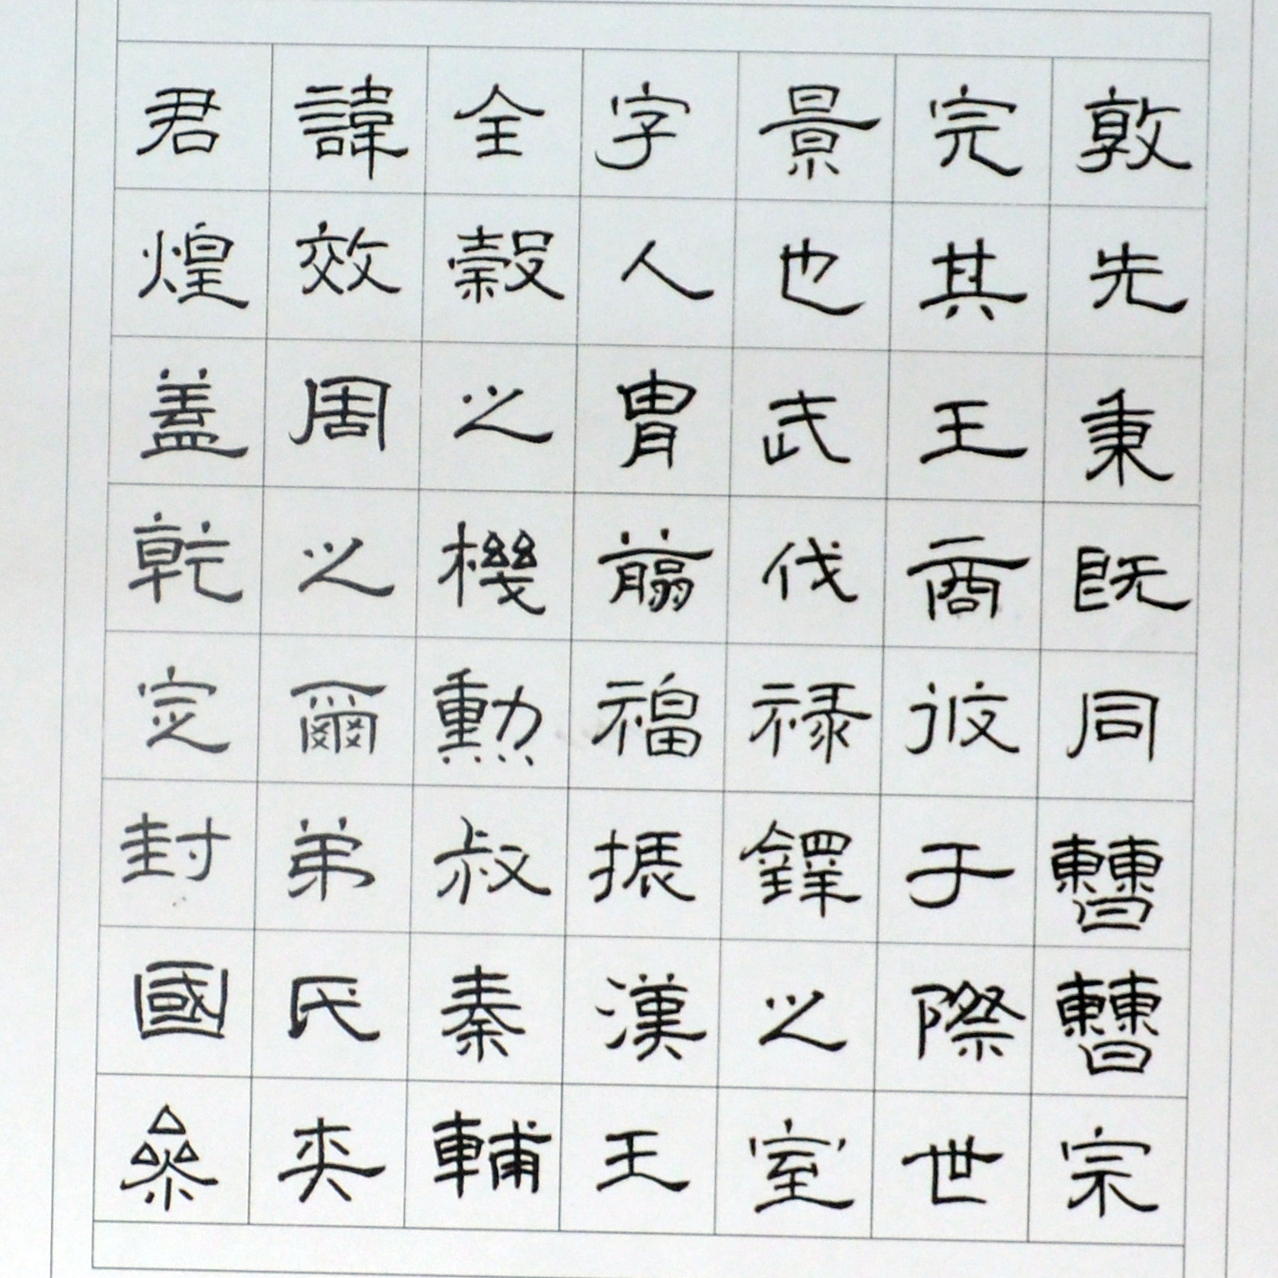 君諱全字景完敦
煌效穀人也其先
蓋周之胄武王秉
乾之機翦伐商既
定爾勳福禄攸同
封弟叔振鐸于曹
國氏秦漢之際曹
參夾輔王室世宗